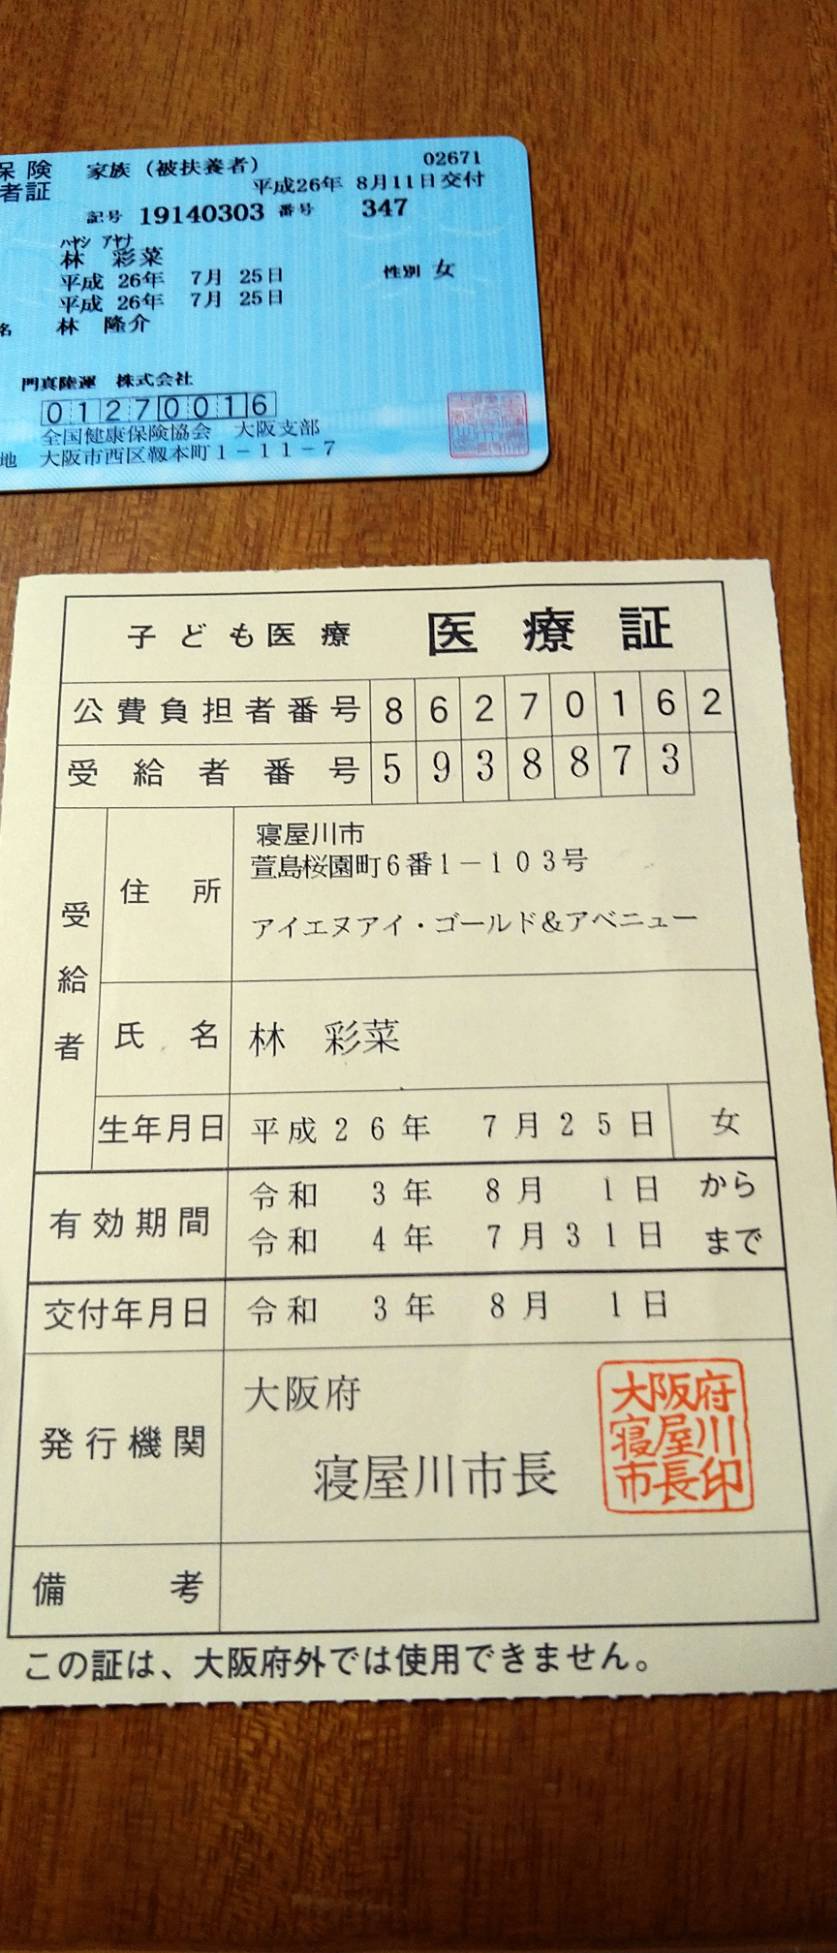 保険 家族（被扶養者） 02671
者証 平成26年 8月11日交付
記号 19140303 番号 347
ﾊﾔｼ ｱﾔﾅ
林 彩菜
平成 26年 7月 25日 性別 女
平成 26年 7月 25日
名 林 隆介
門真陸運 株式会社
01270016
全国健康保険協会 大阪支部
地 大阪市西区靱本町1－11－7
子ども医療 医療証
公費負担者番号 86270162
受給者番号 5938873
受給者
住所 寝屋川市
萱島桜園町6番1－103号
アイエヌアイ・ゴールド＆アベニュー
氏名 林 彩菜
生年月日 平成26年 7月25日 女
有効期間 令和 3年 8月 1日 から
令和 4年 7月31日 まで
交付年月日 令和 3年 8月 1日
発行機関 大阪府
寝屋川市長
大阪府
寝屋川
市長印
備考
この証は、大阪府外では使用できません。